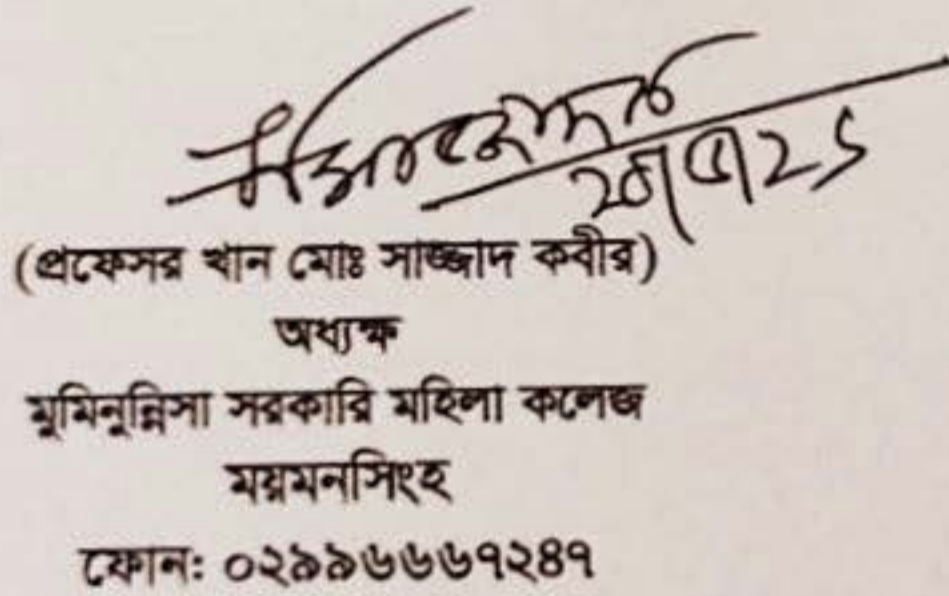 (প্রফেসর খান মোঃ সাজ্জাদ কবীর)
অধ্যক্ষ
মুমিনুন্নিসা সরকারি মহিলা কলেজ
ময়মনসিংহ
ফোন: ০২৯৯৬৬৬৭২৪৭